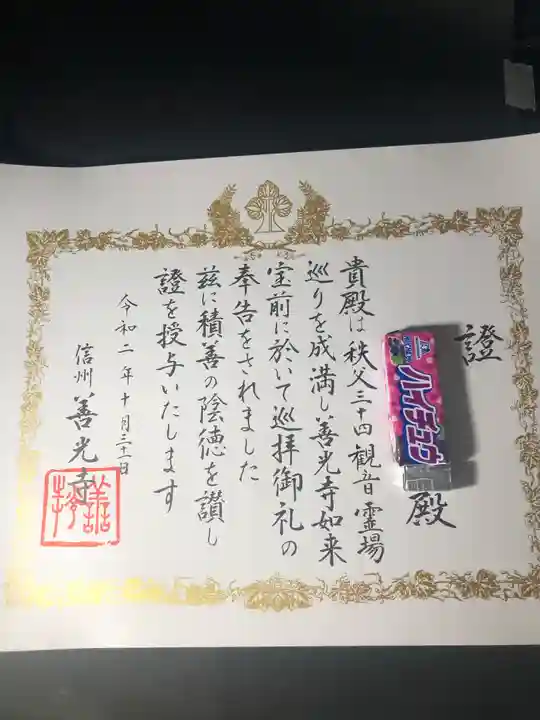 證
殿
ハイチュウ
貴殿は秩父三十四観音霊場
巡りを成満し善光寺如来
宝前に於いて巡拝御礼の
奉告をされました
茲に積善の陰徳を讃し
證を授与いたします
令和二年十月三十一日
信州 善光寺